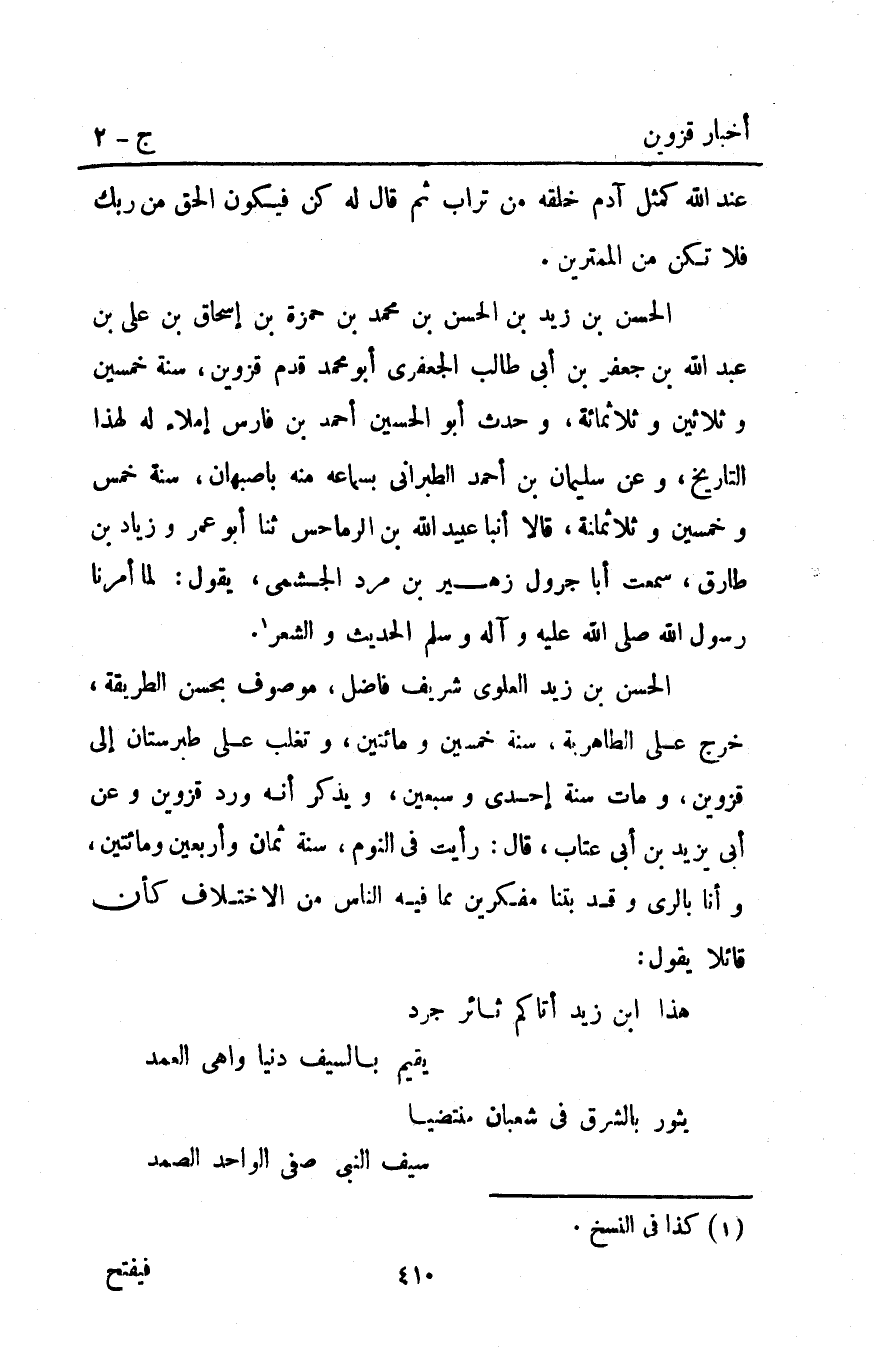 أخبار قزوين ج - ٢
عند الله كمثل آدم خلقه من تراب ثم قال له كن فيكون الحق من ربك
فلا تكن من الممترين .
الحسن بن زيد بن الحسن بن محمد بن حمزة بن إسحاق بن على بن
عبد الله بن جعفر بن أبى طالب الجعفرى أبو محمد قدم قزوين، سنة خمسين
و ثلاثين و ثلاثمائة، و حدث أبو الحسين أحمد بن فارس إملاء له لهذا
التاريخ، و عن سليمان بن أحمد الطبرانى بسماعه منه باصبهان، سنة خمس
و خمسين و ثلاثمائة، قالا أنبا عبيد الله بن الرماحس ثنا أبو عمر و زياد بن
طارق، سمعت أبا جرول زهير بن مرد الجشمى، يقول: لما أمرنا
رسول الله صلى الله عليه و آله و سلم الحديث و الشعر١.
الحسن بن زيد العلوى شريف فاضل، موصوف بحسن الطريقة،
خرج على الطاهرية، سنة خمسين و مائتين، و تغلب على طبرستان إلى
قزوين، و مات سنة إحدى و سبعين، و يذكر أنه ورد قزوين و عن
أبى يزيد بن أبى عتاب، قال: رأيت فى النوم، سنة ثمان وأربعين ومائتين،
و أنا بالرى و قد بتنا مفكرين مما فيه الناس من الاختلاف كأن
قائلا يقول:
هذا ابن زيد أتاكم ثائر جرد
يقيم بالسيف دنيا واهى العمد
يثور بالشرق فى شعبان منتضيا
سيف النبى صفى الواحد الصمد
(١) كذا فى النسخ .
٤١٠ فيفتح